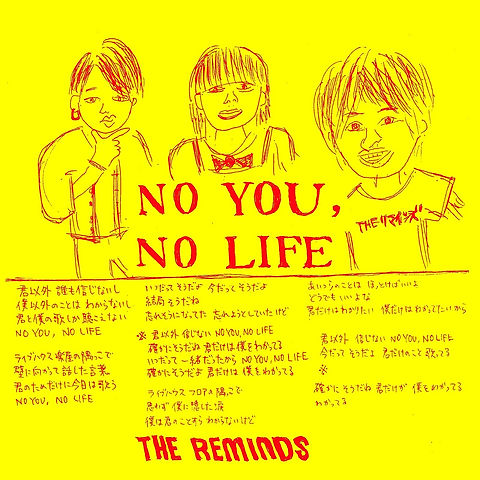 NO YOU,
NO LIFE
THEリマインズ
君以外 誰も信じないし
僕以外のことは わからないし
君と僕の歌しか聴こえない
NO YOU, NO LIFE
ライブハウス 客席の隅っこで
壁に向かって話した言葉
君のためだけに今日は歌う
NO YOU, NO LIFE
いつだってそうだよ 今だってそうだよ
結局 そうだね
忘れそうになってた 忘れようとしていたけど
※ 君以外 信じない NO YOU, NO LIFE
確かにそうだね 君だけは僕をわかってる
いつだって一緒だったから NO YOU, NO LIFE
確かにそうだよ 君だけは 僕をわかってる
ライブハウス フロアの隅っこで
思わず 僕に隠した涙
僕は君のことすら わからないけど
あいつらのことは ほっとけばいいよ
どうでもいいよな
君だけはわかりたい 僕だけはわかってたいから
君以外 信じない NO YOU, NO LIFE
今だって そうだよ 君だけのこと 歌ってる
※
確かに そうだね 君だけが 僕をわかってる
わかってる
THE REMINDS